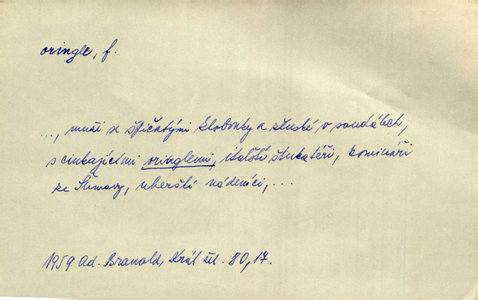 oringle, f.
..., muži se špičatými klobouky a ženské v sandálech,
s cinkajícími oringlemi, italští štukatéři, komináři
ze Šumavy, uherští nádeníci, ...
1959 Ad. Branald, Král žel. 80, 17.